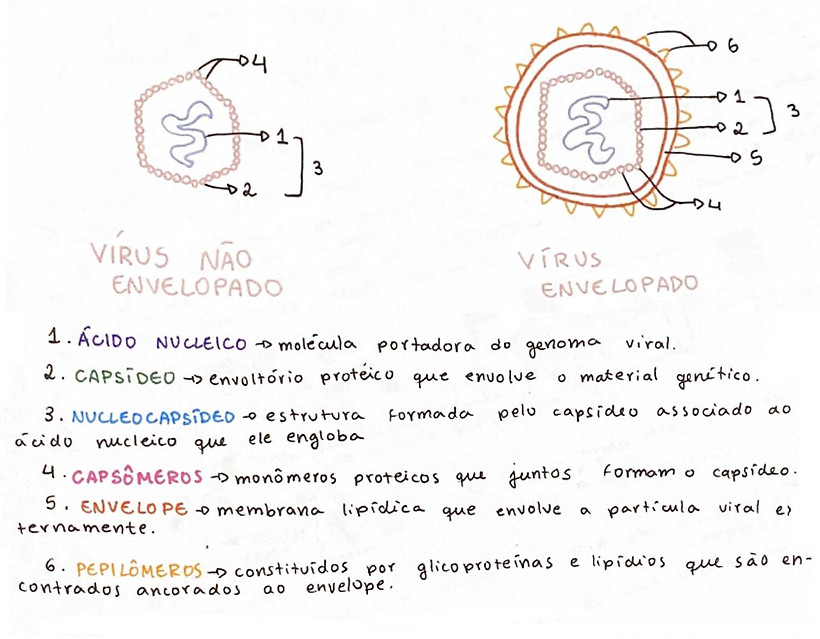 4
1
3
2
6
1
3
2
5
4
VÍRUS NÃO
ENVELOPADO
VÍRUS
ENVELOPADO
1. ÁCIDO NUCLEICO → molécula portadora do genoma viral.
2. CAPSÍDEO → envoltório protéico que envolve o material genético.
3. NUCLEOCAPSÍDEO → estrutura formada pelo capsídeo associado ao
ácido nucleico que ele engloba
4. CAPSÔMEROS → monômeros proteicos que juntos formam o capsídeo.
5. ENVELOPE → membrana lipídica que envolve a partícula viral ex
ternamente.
6. PEPILÔMEROS → constituídos por glicoproteínas e lipídios que são en-
contrados ancorados ao envelope.